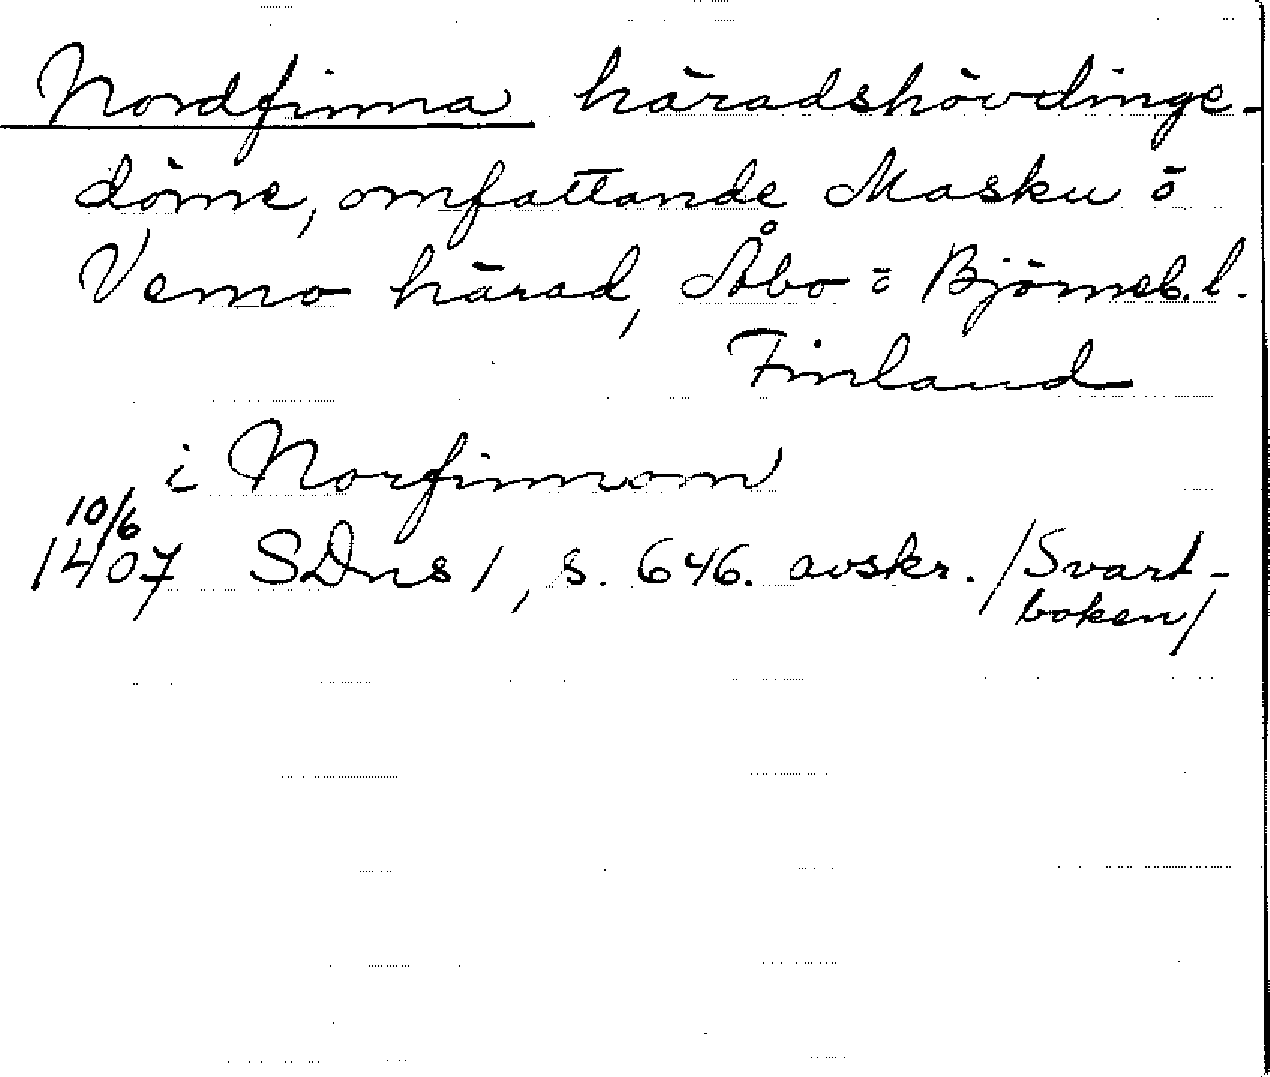 Nordfinna häradshövdinge-
döme, omfattande Masku o
Vemo härad, Åbo = Björneb. l.
Finland
i Norfinnom
10/6
1407 SDns 1, s. 646. avskr. /Svart-
boken/